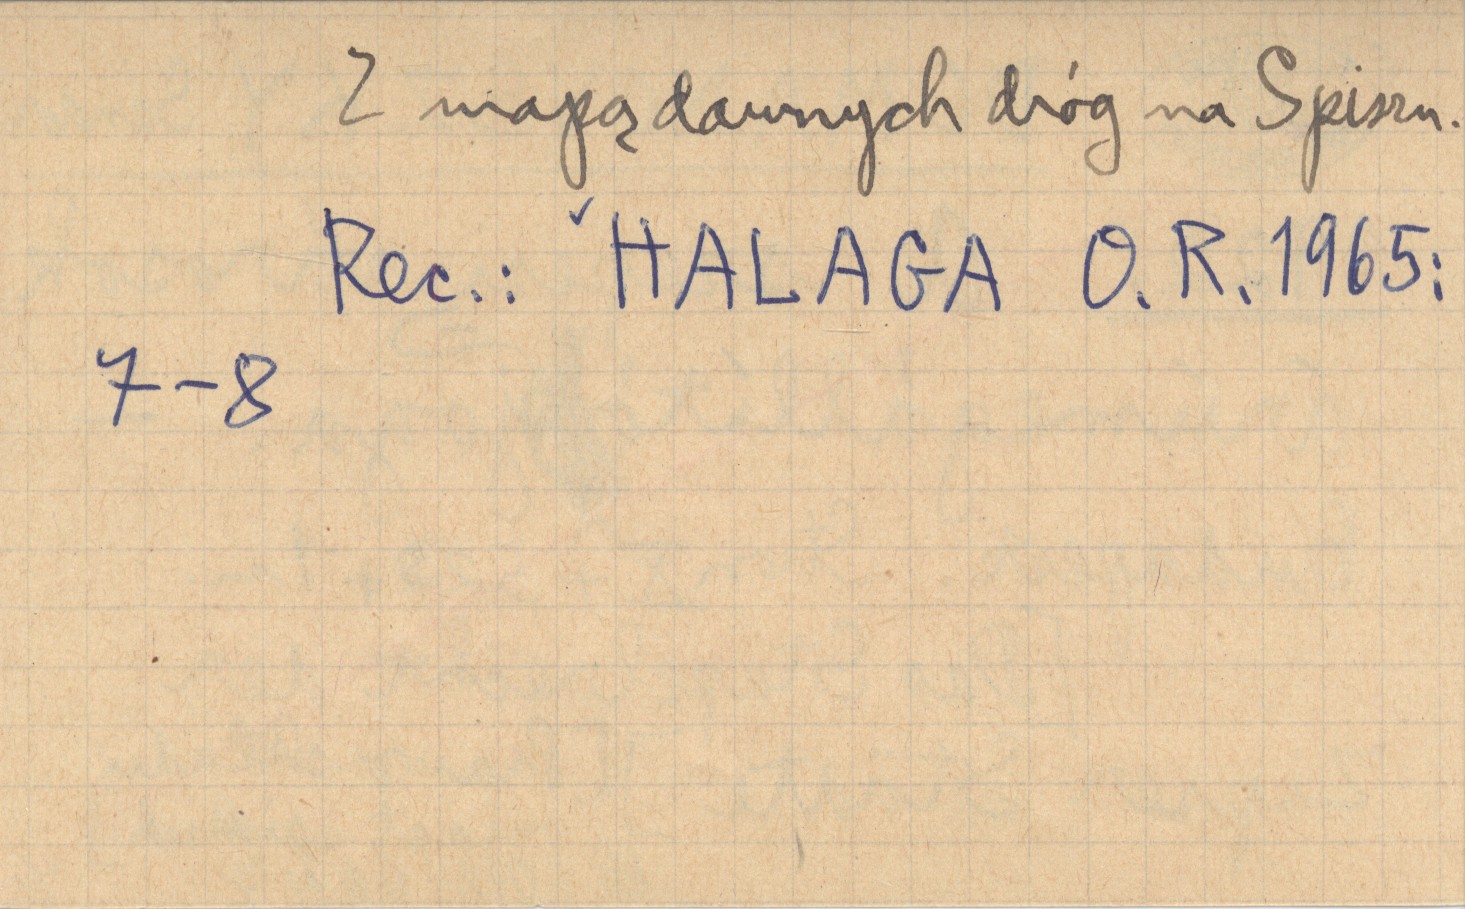 Z mapą dawnych dróg na Spiszu.
Rec.: ✓HALAGA O.R. 1965:
7-8